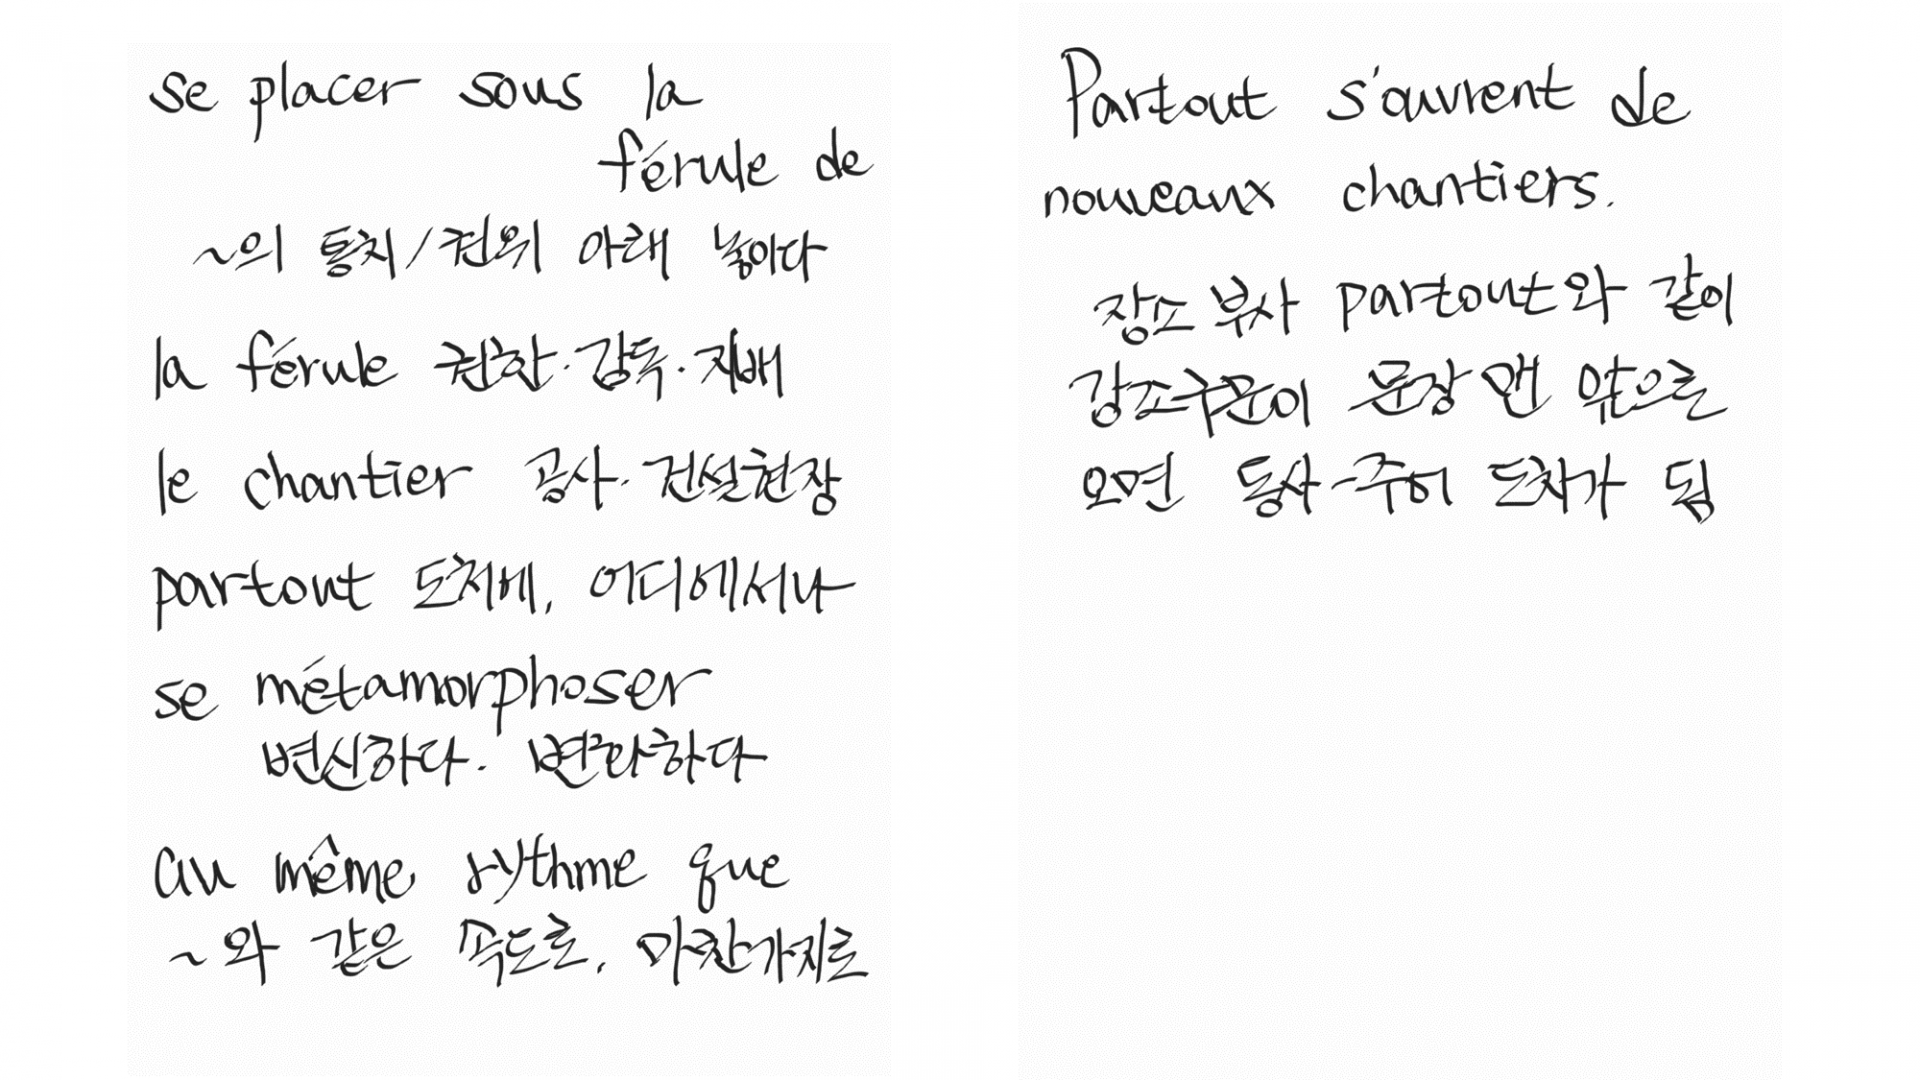 se placer sous la
férule de
~의 통치/권위 아래 놓이다
la férule 권한·감독·지배
le chantier 공사·건설현장
partout 도처에, 어디에서나
se métamorphoser
변신하다. 변화하다
au même rythme que
~와 같은 속도로, 마찬가지로
Partout s'ouvrent de
nouveaux chantiers.
장소 부사 partout와 같이
강조구문이 문장 맨 앞으로
오면 동사-주어 도치가 됨